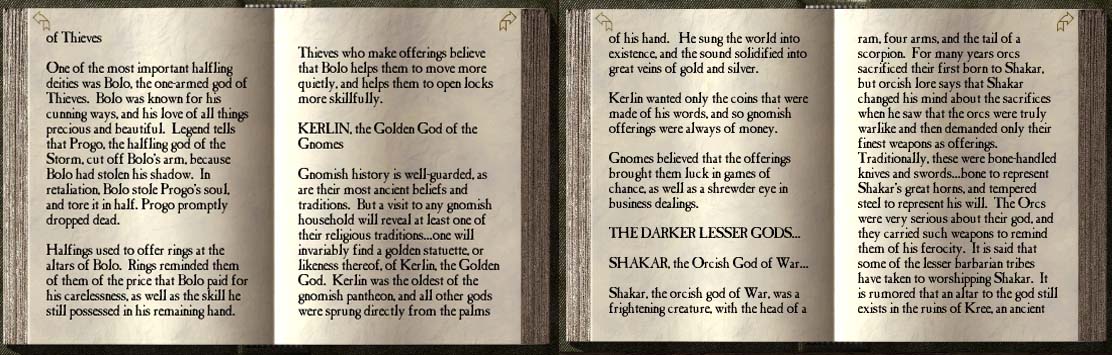 of Thieves
One of the most important halfling
deities was Bolo, the one-armed god of
Thieves. Bolo was known for his
cunning ways, and his love of all things
precious and beautiful. Legend tells
that Progo, the halfling god of the
Storm, cut off Bolo's arm, because
Bolo had stolen his shadow. In
retaliation, Bolo stole Progo's soul,
and tore it in half. Progo promptly
dropped dead.
Halfings used to offer rings at the
altars of Bolo. Rings reminded them
of them of the price that Bolo paid for
his carelessness, as well as the skill he
still possessed in his remaining hand.
Thieves who make offerings believe
that Bolo helps them to move more
quietly, and helps them to open locks
more skillfully.
KERLIN, the Golden God of the
Gnomes
Gnomish history is well-guarded, as
are their most ancient beliefs and
traditions. But a visit to any gnomish
household will reveal at least one of
their religious traditions...one will
invariably find a golden statuette, or
likeness thereof, of Kerlin, the Golden
God. Kerlin was the oldest of the
gnomish pantheon, and all other gods
were sprung directly from the palms
of his hand. He sung the world into
existence, and the sound solidified into
great veins of gold and silver.
Kerlin wanted only the coins that were
made of his words, and so gnomish
offerings were always of money.
Gnomes believed that the offerings
brought them luck in games of
chance, as well as a shrewder eye in
business dealings.
THE DARKER LESSER GODS...
SHAKAR, the Orcish God of War...
Shakar, the orcish god of War, was a
frightening creature, with the head of a
ram, four arms, and the tail of a
scorpion. For many years orcs
sacrificed their first born to Shakar,
but orcish lore says that Shakar
changed his mind about the sacrifices
when he saw that the orcs were truly
warlike and then demanded only their
finest weapons as offerings.
Traditionally, these were bone-handled
knives and swords...bone to represent
Shakar's great horns, and tempered
steel to represent his will. The Orcs
were very serious about their god, and
they carried such weapons to remind
them of his ferocity. It is said that
some of the lesser barbarian tribes
have taken to worshipping Shakar. It
is rumored that an altar to the god still
exists in the ruins of Kree, an ancient